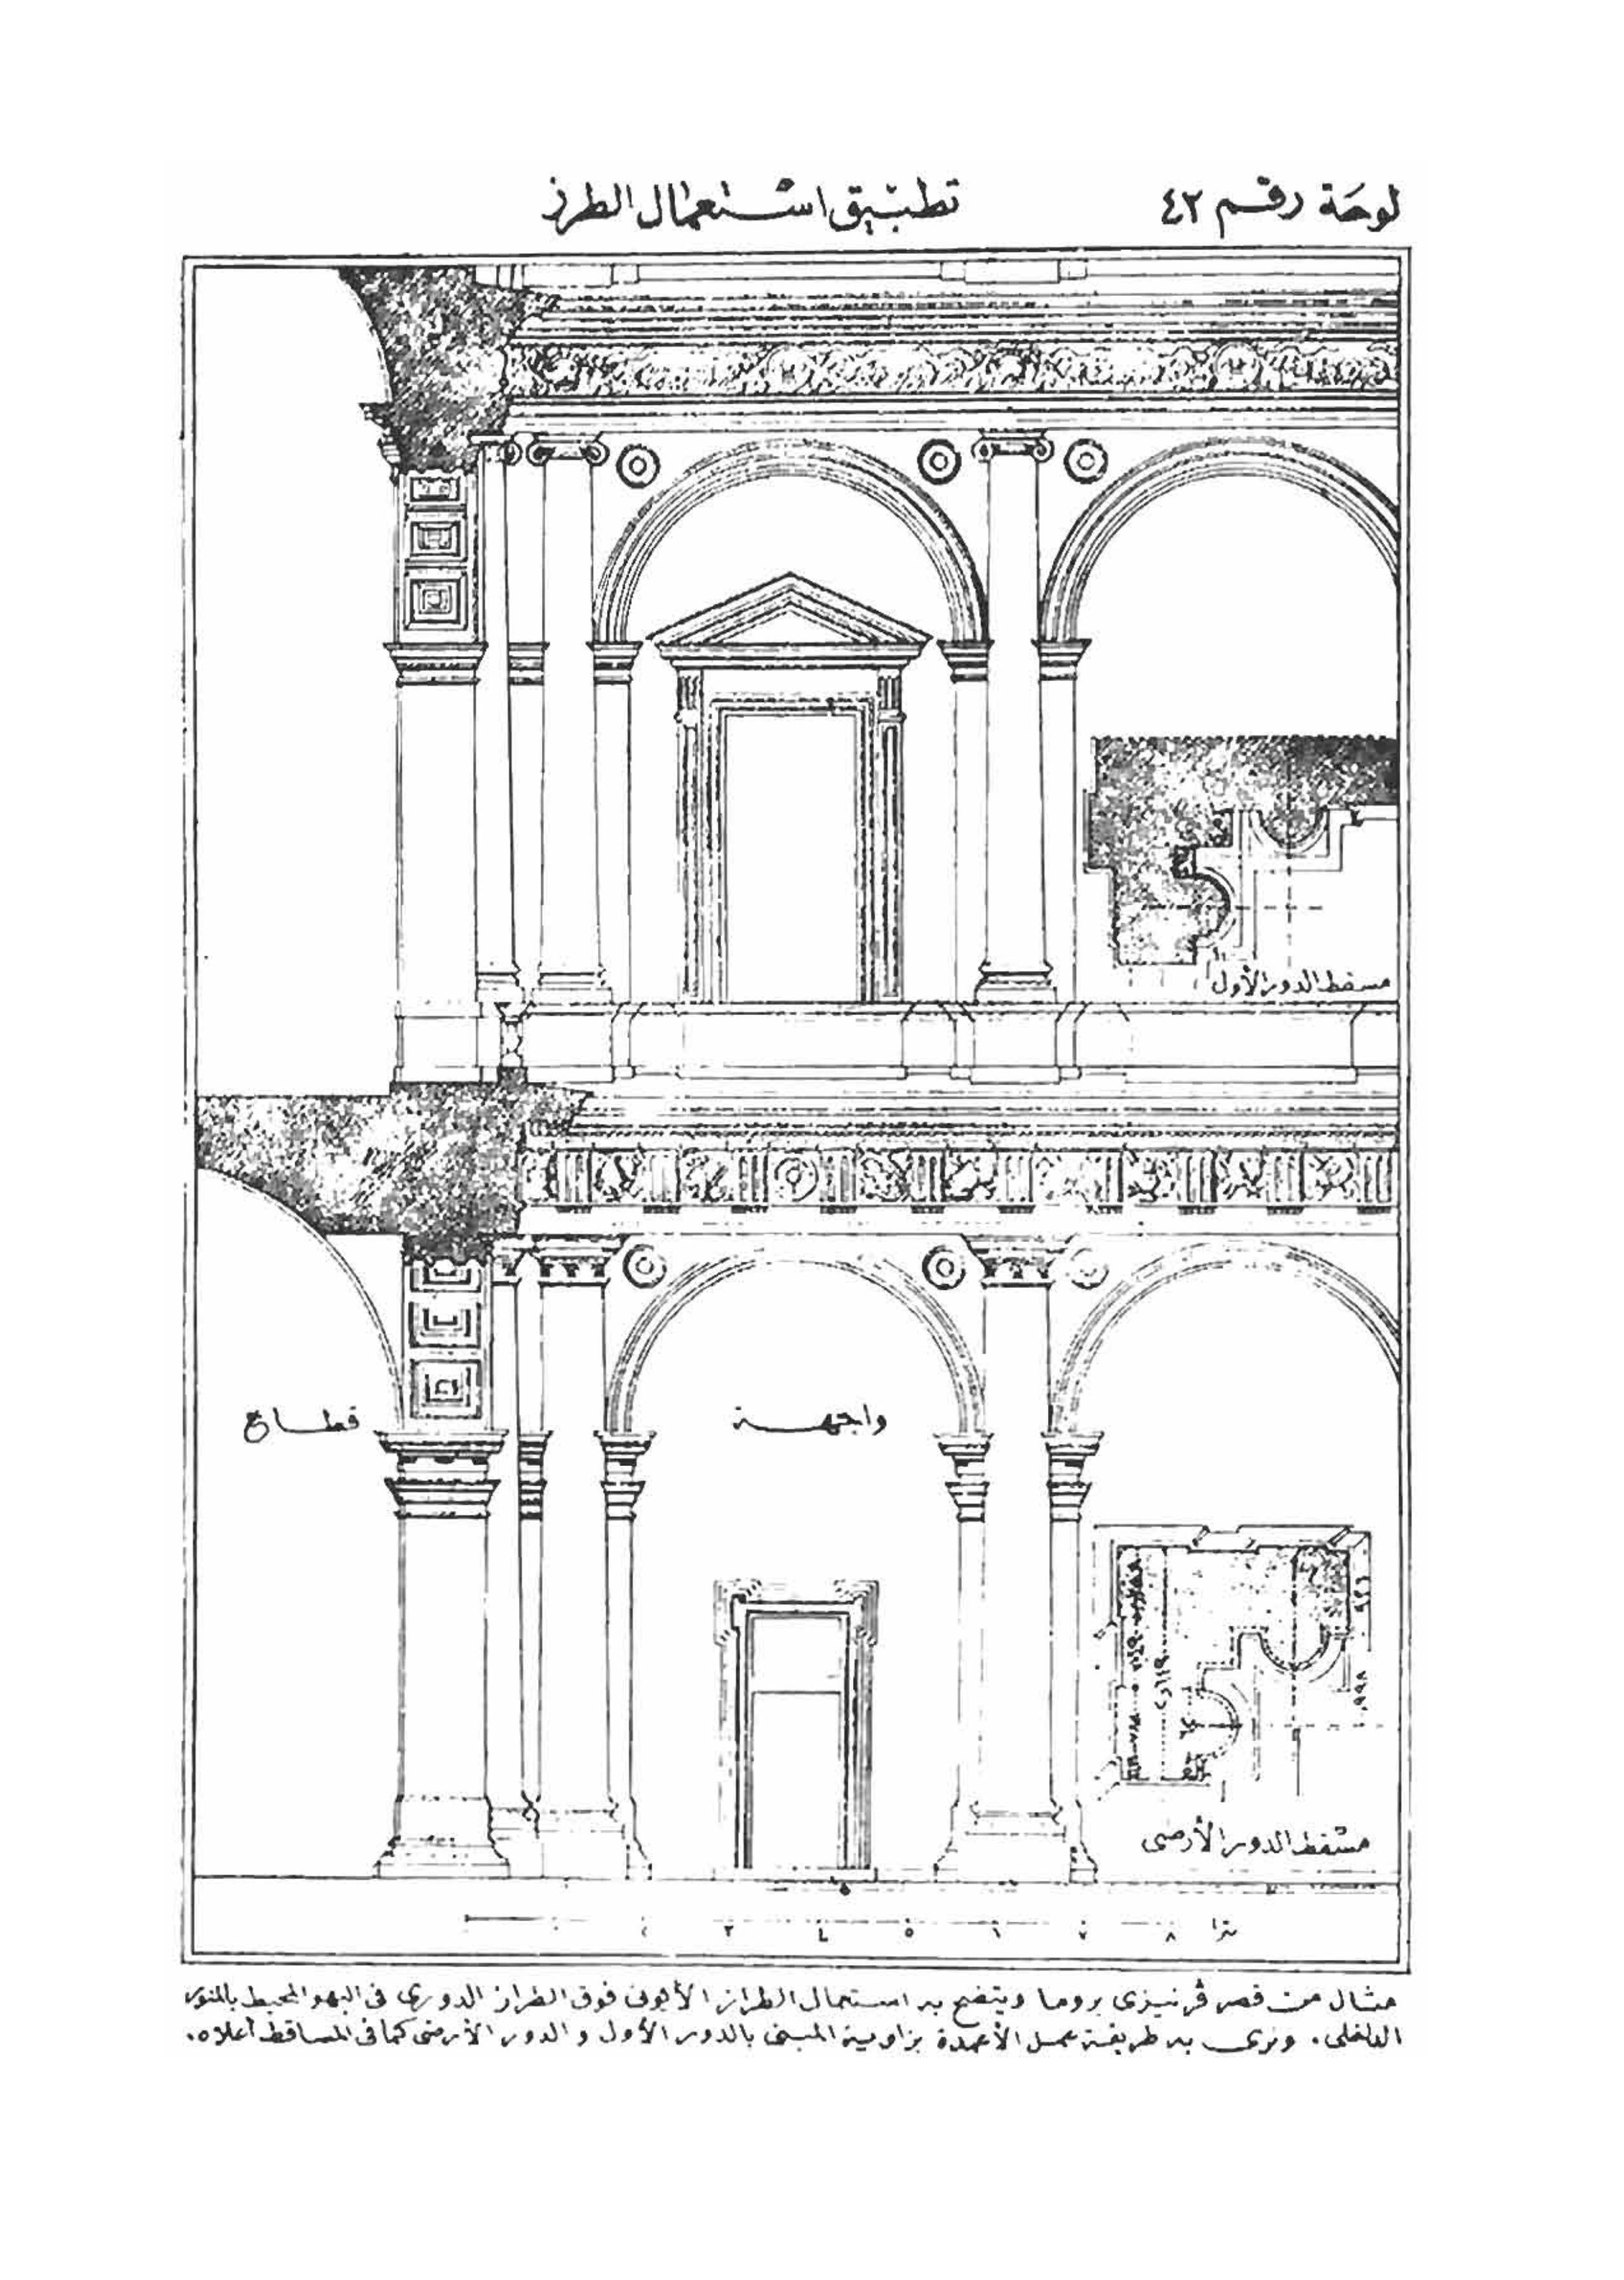 لوحة رقم ٤٢
تطبيق استعمال الطرز
مسقط الدور الأول
قطاع
واجهة
مسقط الدور الأرضى
٢ ٣ ٤ ٥ ٦ ٧ ٨ مترا
مثال من قصر ڤرنيزى بروما ويتضح به استعمال الطراز الأيونى فوق الطراز الدورى فى البهو المحيط بالمنور
الداخلى. ونرى به طريقة عمل الأعمدة بزاوية المبنى بالدور الأول والدور الأرضى كما فى المساقط أعلاه.